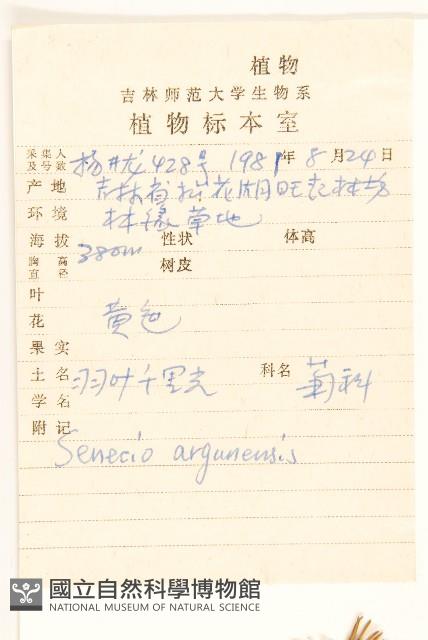 植物
吉林师范大学生物系
植物标本室
采集人及号数 杨井龙 428号 1981年 8月24日
产地 吉林省 花湖旺起林场
环境 林缘草地
海拔 380m 性状 体高
胸高直径 树皮
叶
花 黄色
果实
土名 羽叶千里光 科名 菊科
学名
附记
Senecio argunensis
國立自然科學博物館
NATIONAL MUSEUM OF NATURAL SCIENCE